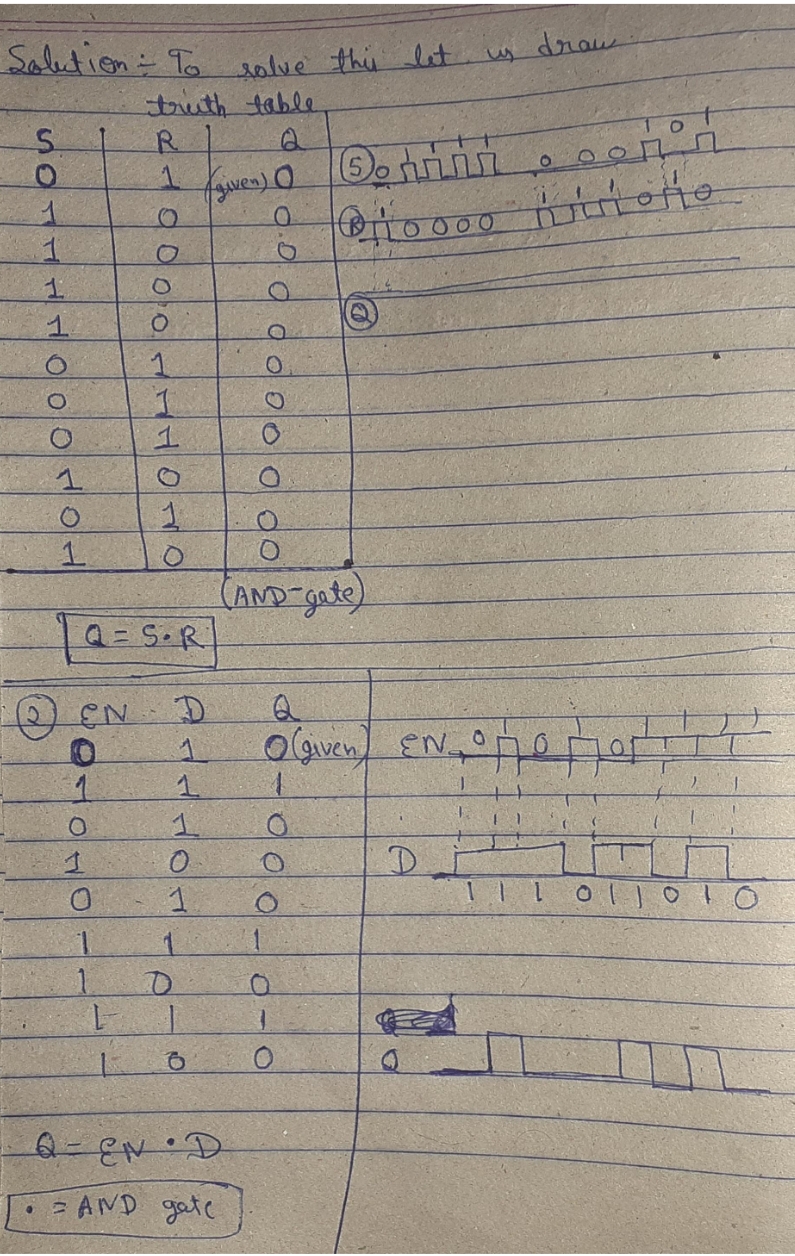 Solution :- To solve this let us draw
truth table
S R Q
0 1 (given) 0
1 0 0
1 0 0
1 0 0
1 0 0
0 1 0
0 1 0
0 1 0
1 0 0
0 1 0
1 0 0
(AND-gate)
Q = S·R
S 0 1 1 1 1 0 0 0 1 0 1
R 1 0 0 0 0 1 1 1 0 1 0
Q
2 EN D Q
0 1 0 (given)
1 1 1
0 1 0
1 0 0
0 1 0
1 1 1
1 0 0
1 1 1
1 0 0
Q = EN · D
· = AND gate
EN 0 1 0 1 0 1 1 1 1
D
1 1 1 0 1 1 0 1 0
Q